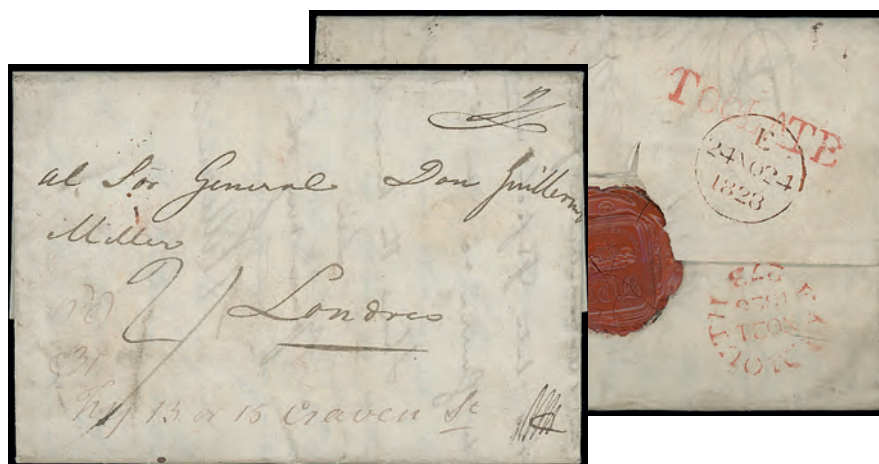 al Sor General Don Guillermo
Miller
2/ Londres
try 13 or 15 Craven St
TOO LATE
E
24 NO 24
1823